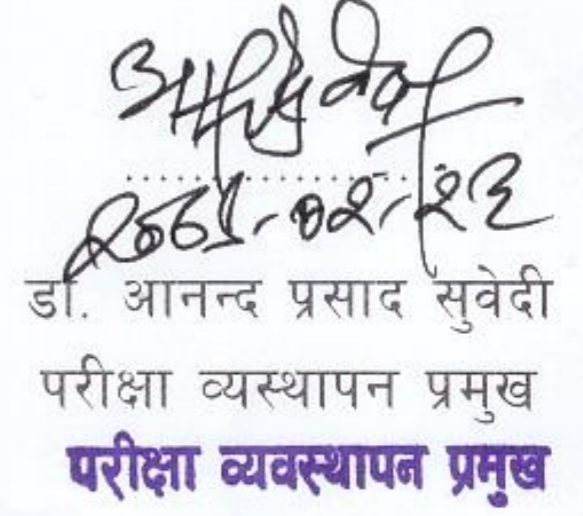 डा. आनन्द प्रसाद सुवेदी
परीक्षा व्यस्थापन प्रमुख
परीक्षा व्यवस्थापन प्रमुख